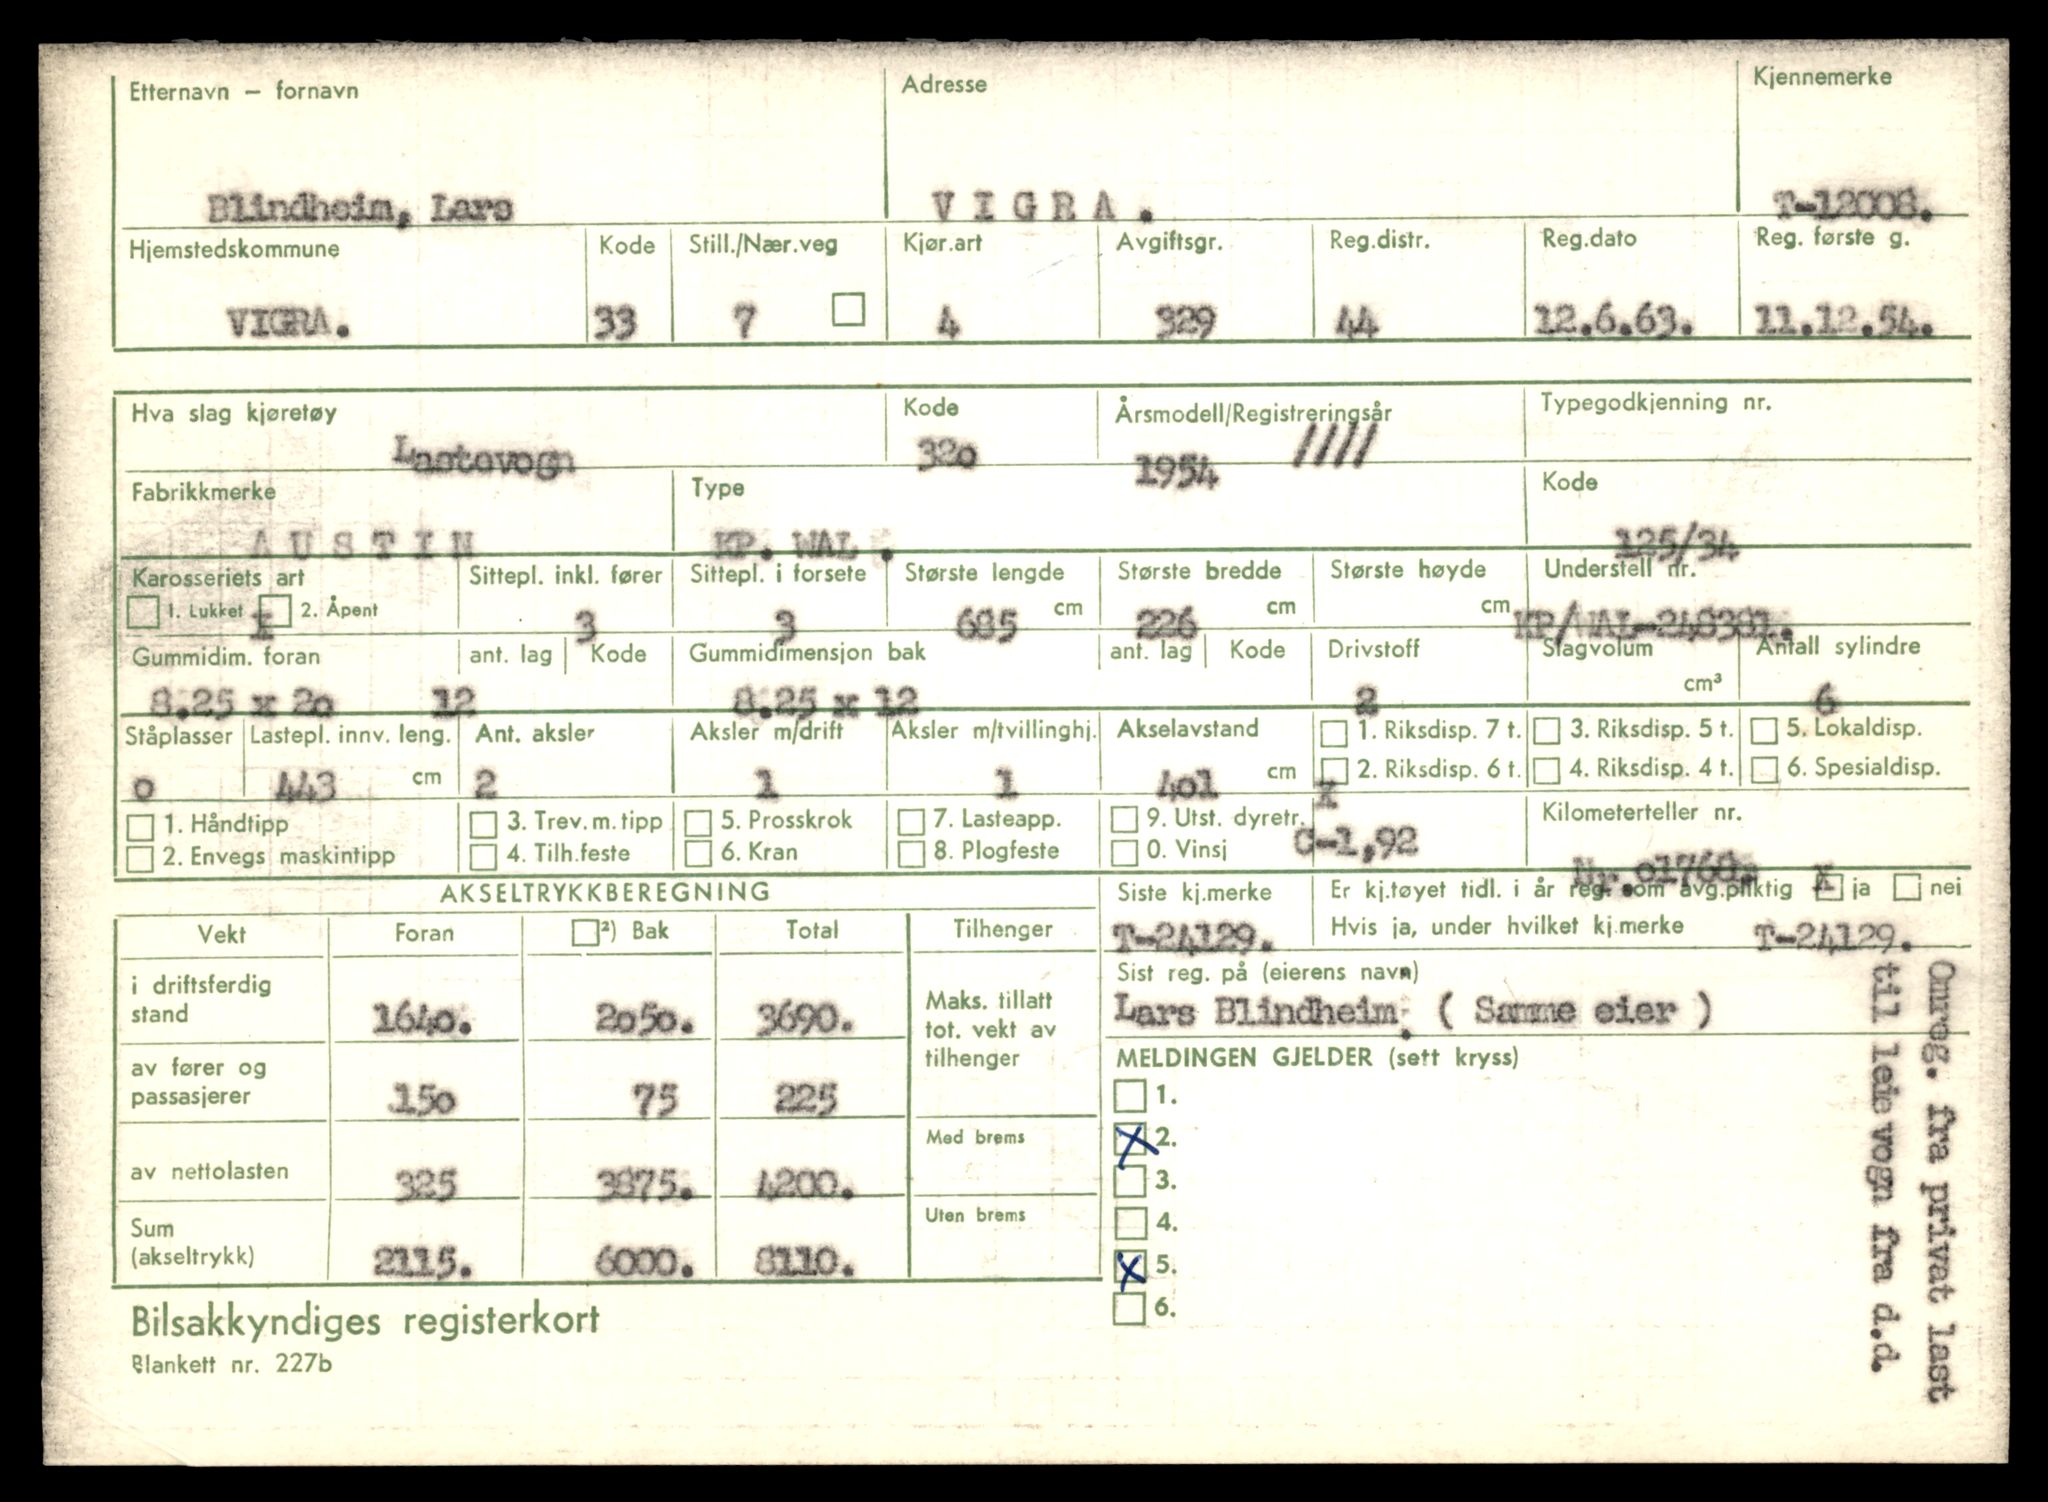 Etternavn – fornavn Adresse Kjennemerke
Blindheim, Lars VIGRA. T-12008.
Hjemstedskommune Kode Still./Nær.veg Kjør.art Avgiftsgr. Reg.distr. Reg.dato Reg. første g.
VIGRA. 33 7 4 329 44 12.6.63. 11.12.54.
Hva slag kjøretøy Kode Årsmodell/Registreringsår Typegodkjenning nr.
Lastevogn 320 1954 ////
Fabrikkmerke Type Kode
AUSTIN KP. WAL . 125/34
Karosseriets art Sittepl. inkl. fører Sittepl. i forsete Største lengde Største bredde Største høyde Understell nr.
1. Lukket 2. Åpent cm cm cm
x 3 3 685 226 KP/WAL-248381.
Gummidim. foran ant. lag Kode Gummidimensjon bak ant. lag Kode Drivstoff Slagvolum Antall sylindre
cm³
8.25 x 20 12 8.25 x 12 2 6
Ståplasser Lastepl. innv. leng. Ant. aksler Aksler m/drift Aksler m/tvillinghj. Akselavstand 1. Riksdisp. 7 t. 3. Riksdisp. 5 t. 5. Lokaldisp.
cm cm 2. Riksdisp. 6 t. 4. Riksdisp. 4 t. 6. Spesialdisp.
0 443 2 1 1 401 x
1. Håndtipp 3. Trev. m. tipp 5. Prosskrok 7. Lasteapp. 9. Utst. dyretr. Kilometerteller nr.
2. Envegs maskintipp 4. Tilh.feste 6. Kran 8. Plogfeste 0. Vinsj C-1,92
Nr. 01768.
AKSELTRYKKBEREGNING
Siste kj.merke Er kj.tøyet tidl. i år reg. som avg.pliktig x ja nei
T-24129. Hvis ja, under hvilket kj.merke T-24129.
Vekt Foran ²) Bak Total Tilhenger
Sist reg. på (eierens navn)
Lars Blindheim. ( Samme eier )
i driftsferdig
stand 1640. 2050. 3690.
Maks. tillatt
tot. vekt av
tilhenger
av fører og
passasjerer 150 75 225
Med brems
av nettolasten 325 3875. 4200.
Uten brems
Sum
(akseltrykk) 2115. 6000. 8110.
MELDINGEN GJELDER (sett kryss)
1.
x 2.
3.
4.
x 5.
6.
Omreg. fra privat last
til leie vogn fra d.d.
Bilsakkyndiges registerkort
Blankett nr. 227b